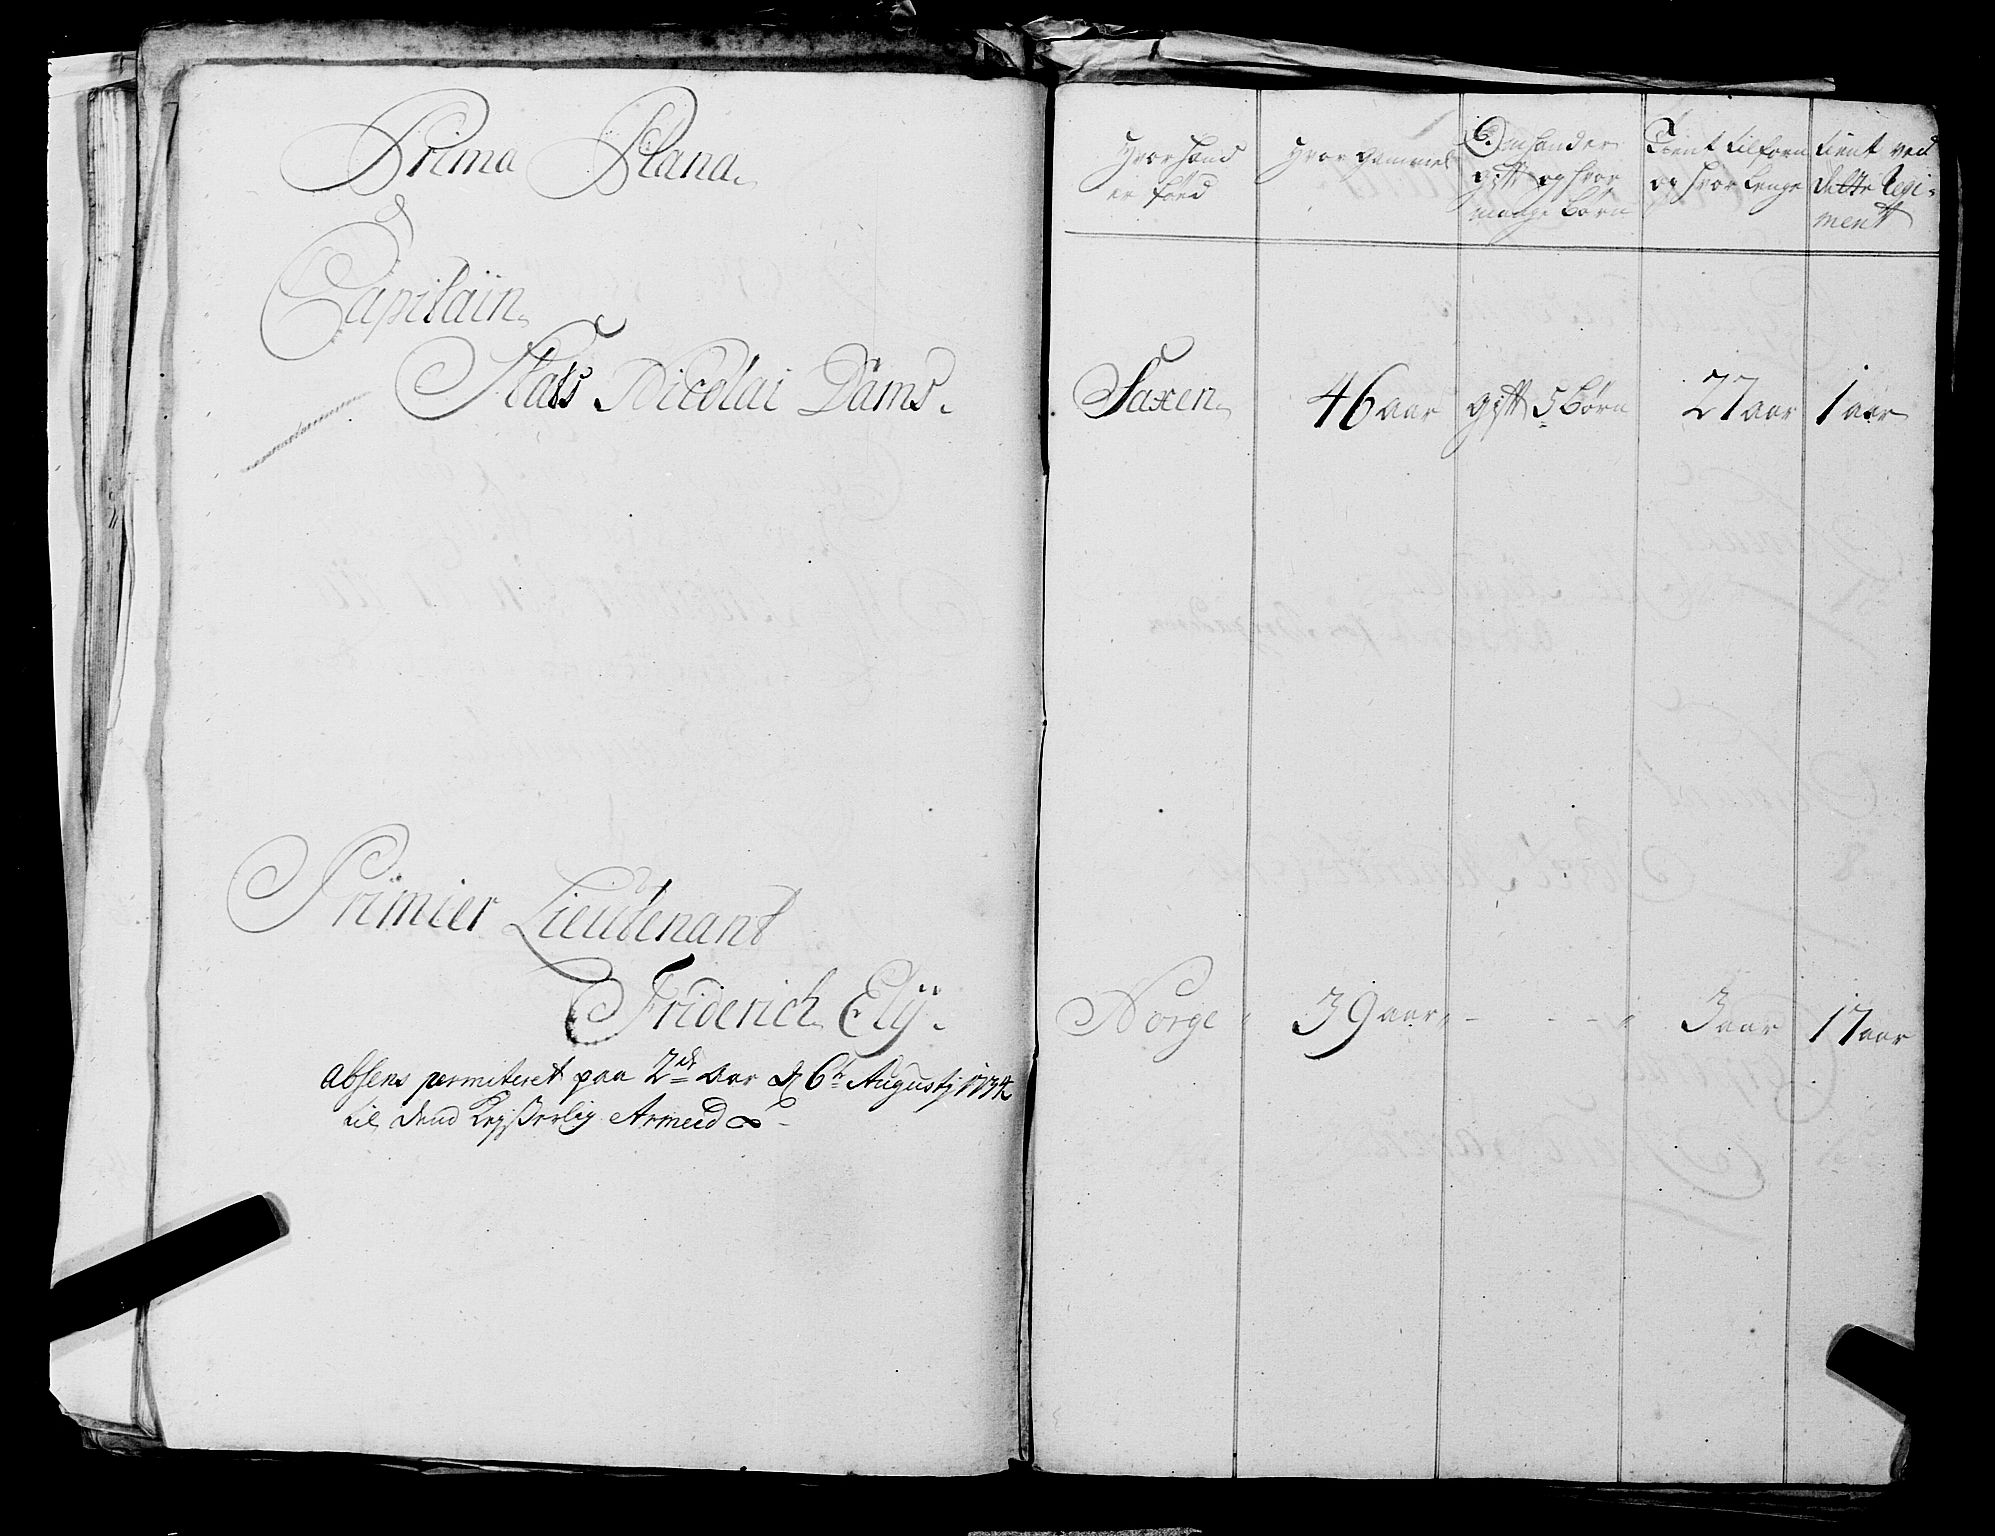 Prima Plana.
Capitaiin.
Stats Nicolai Dams.
Primier Lieutenant
Friderich Elÿ.
absens permiteret paa 2de Aar d 6te Augustj 1734
til dend Keyßerlig Armeed
Hvor hand er föed
Hvor gammel
Om hand er gift og hvor mange börn
Tient tilforn og hvor lenge
tient ved dette Regiment
Saxen. 46 aar gift 5 börn 27 aar 1 aar
Norge 39 aar - - - 3 aar 17 aar